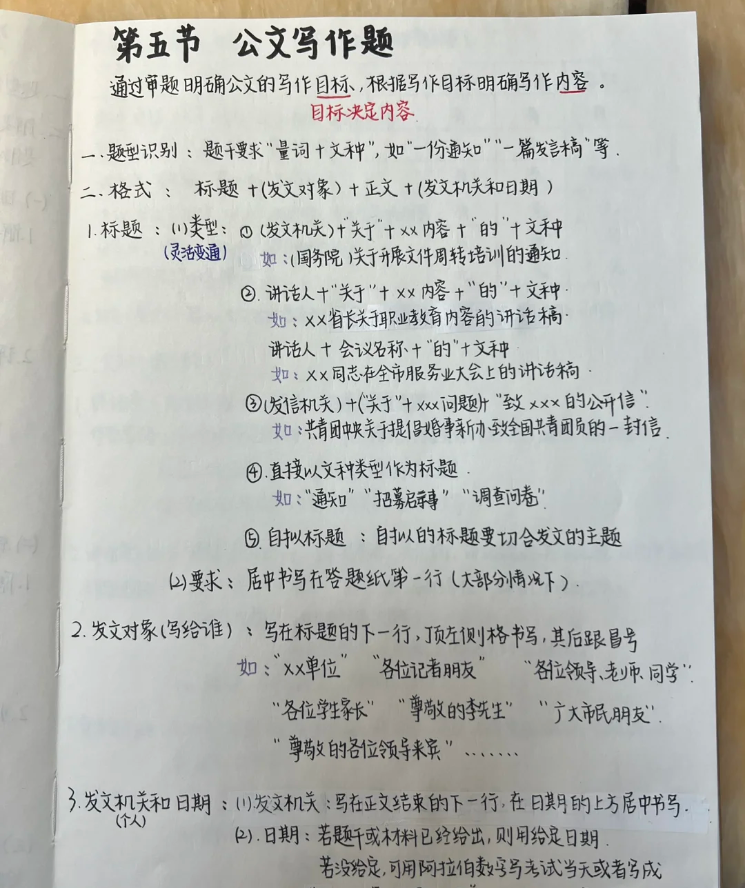 第五节 公文写作题
通过审题明确公文的写作目标、根据写作目标明确写作内容。
目标决定内容
一、题型识别：题干要求"量词+文种"，如"一份通知""一篇发言稿"等.
二、格式： 标题+(发文对象)+正文+(发文机关和日期)
1.标题：(1)类型：①(发文机关)+"关于"+xx内容+"的"+文种
(灵活变通) 如：(国务院)关于开展文件周转培训的通知.
②.讲话人+"关于"+xx内容+"的"+文种.
如：xx省长关于职业教育内容的讲话稿.
讲话人+会议名称+"的"+文种.
如：xx同志在全市服务业大会上的讲话稿.
③(发信机关)+("关于"+xxx问题)+"致xxx的公开信".
如：共青团中央关于提倡婚事新办致全国共青团员的一封信.
④.直接以文种类型作为标题.
如："通知" "招募启事" "调查问卷"
⑤.自拟标题：自拟的标题要切合发文的主题
(2)要求：居中书写在答题纸第一行(大部分情况下).
2.发文对象(写给谁)：写在标题的下一行，顶左侧格书写，其后跟冒号
如："xx单位" "各位记者朋友" "各位领导、老师、同学".
"各位学生家长" "尊敬的李先生" "广大市民朋友".
"尊敬的各位领导来宾" .......
3.发文机关和日期：(1)发文机关：写在正文结束的下一行，在日期的上方居中书写.
(个人)
(2).日期：若题干或材料已经给出，则用给定日期.
若没给定，可用阿拉伯数字写考试当天或者写成